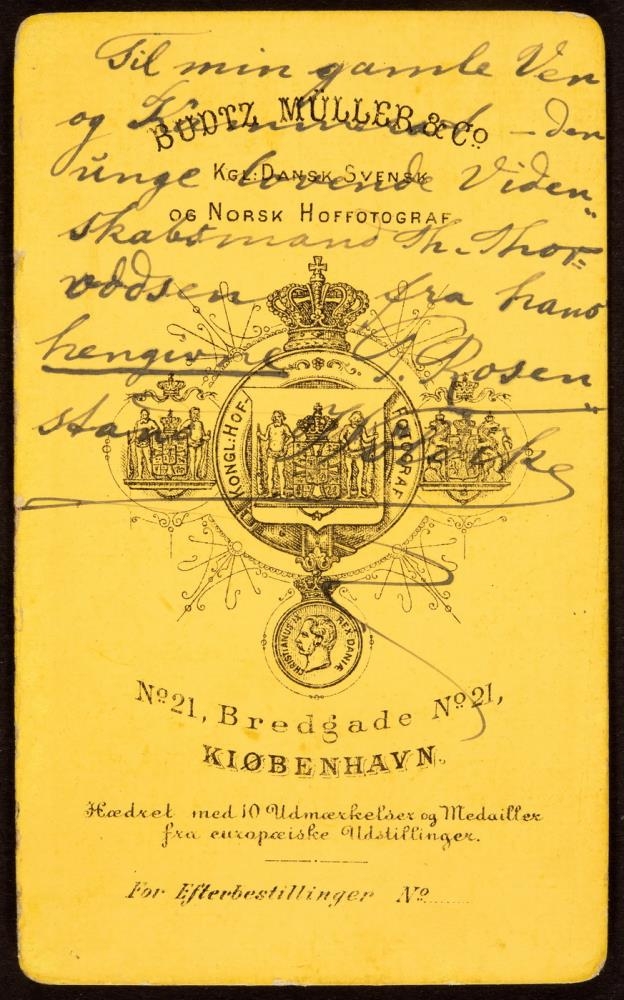 Til min gamle Ven
og Kammerat – den
unge lovende Viden„
skabsmand Th. Thor=
oddsen fra hans
hengivne
Rosen„
BUDTZ MÜLLER & Co.
KGL: DANSK, SVENSK
OG NORSK HOFFOTOGRAF
KONGL: HOF-
FOTOGRAF
CHRISTIANUS IX REX DANIÆ
No 21, Bredgade No 21,
KIØBENHAVN.
Hædret med 10 Udmærkelser og Medailler
fra europæiske Udstillinger.
For Efterbestillinger No.......